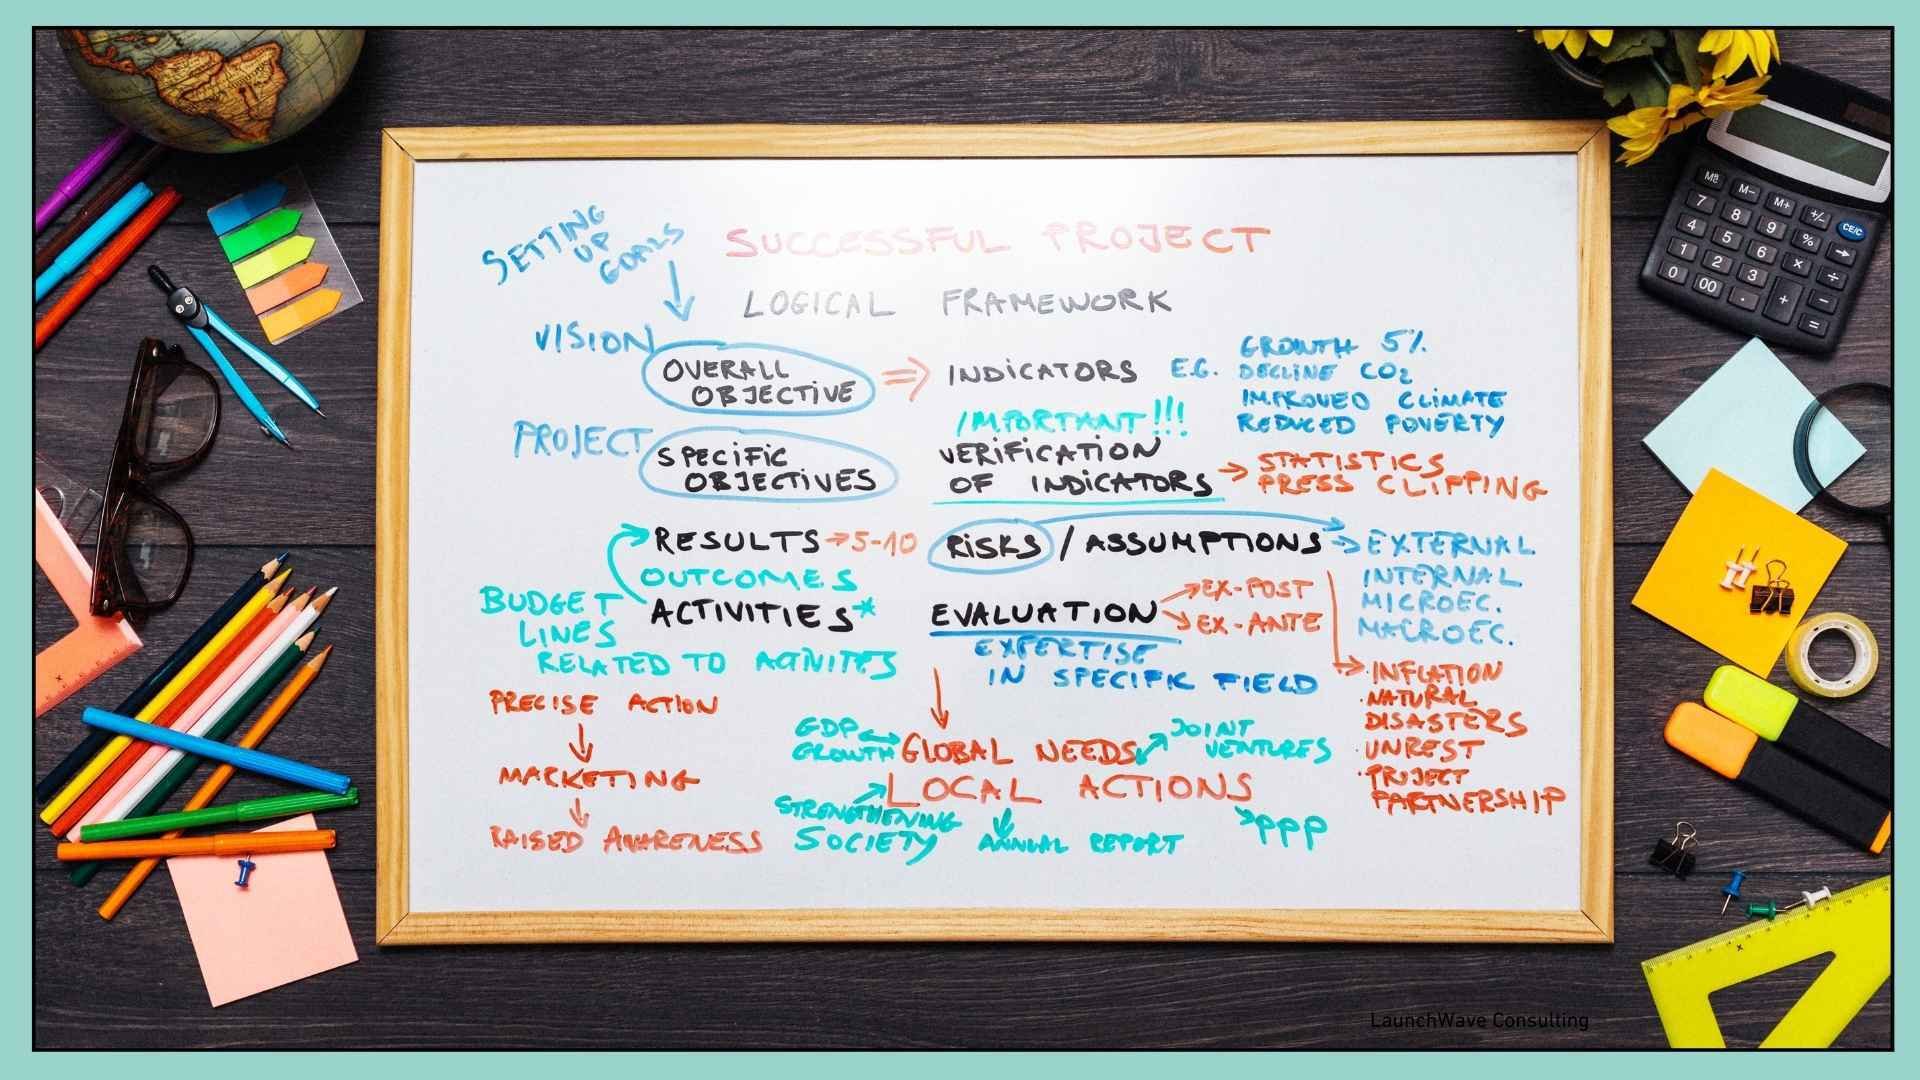 SETTING
UP
GOALS
SUCCESSFUL PROJECT
LOGICAL FRAMEWORK
VISION
OVERALL
OBJECTIVE
INDICATORS E.G.
GROWTH 5%
DECLINE CO2
IMPROVED CLIMATE
REDUCED POVERTY
IMPORTANT!!!
PROJECT
SPECIFIC
OBJECTIVES
VERIFICATION
OF INDICATORS
STATISTICS
PRESS CLIPPING
RESULTS → 5-10
OUTCOMES
ACTIVITIES*
RISKS / ASSUMPTIONS
EXTERNAL
INTERNAL
MICROEC.
MACROEC.
BUDGET
LINES
RELATED TO ACTIVITES
EVALUATION
EX-POST
EX-ANTE
EXPERTISE
IN SPECIFIC FIELD
· INFLATION
· NATURAL
DISASTERS
· UNREST
· PROJECT
PARTNERSHIP
PRECISE ACTION
MARKETING
RAISED AWARENESS
GDP
GROWTH
GLOBAL NEEDS
LOCAL ACTIONS
JOINT
VENTURES
STRENGTHENING
SOCIETY
ANNUAL REPORT
PPP
MR M- M+ +/- CE/C
7 8 9 % →
4 5 6 × ÷
1 2 3 + −
0 00 . =
LaunchWave Consulting